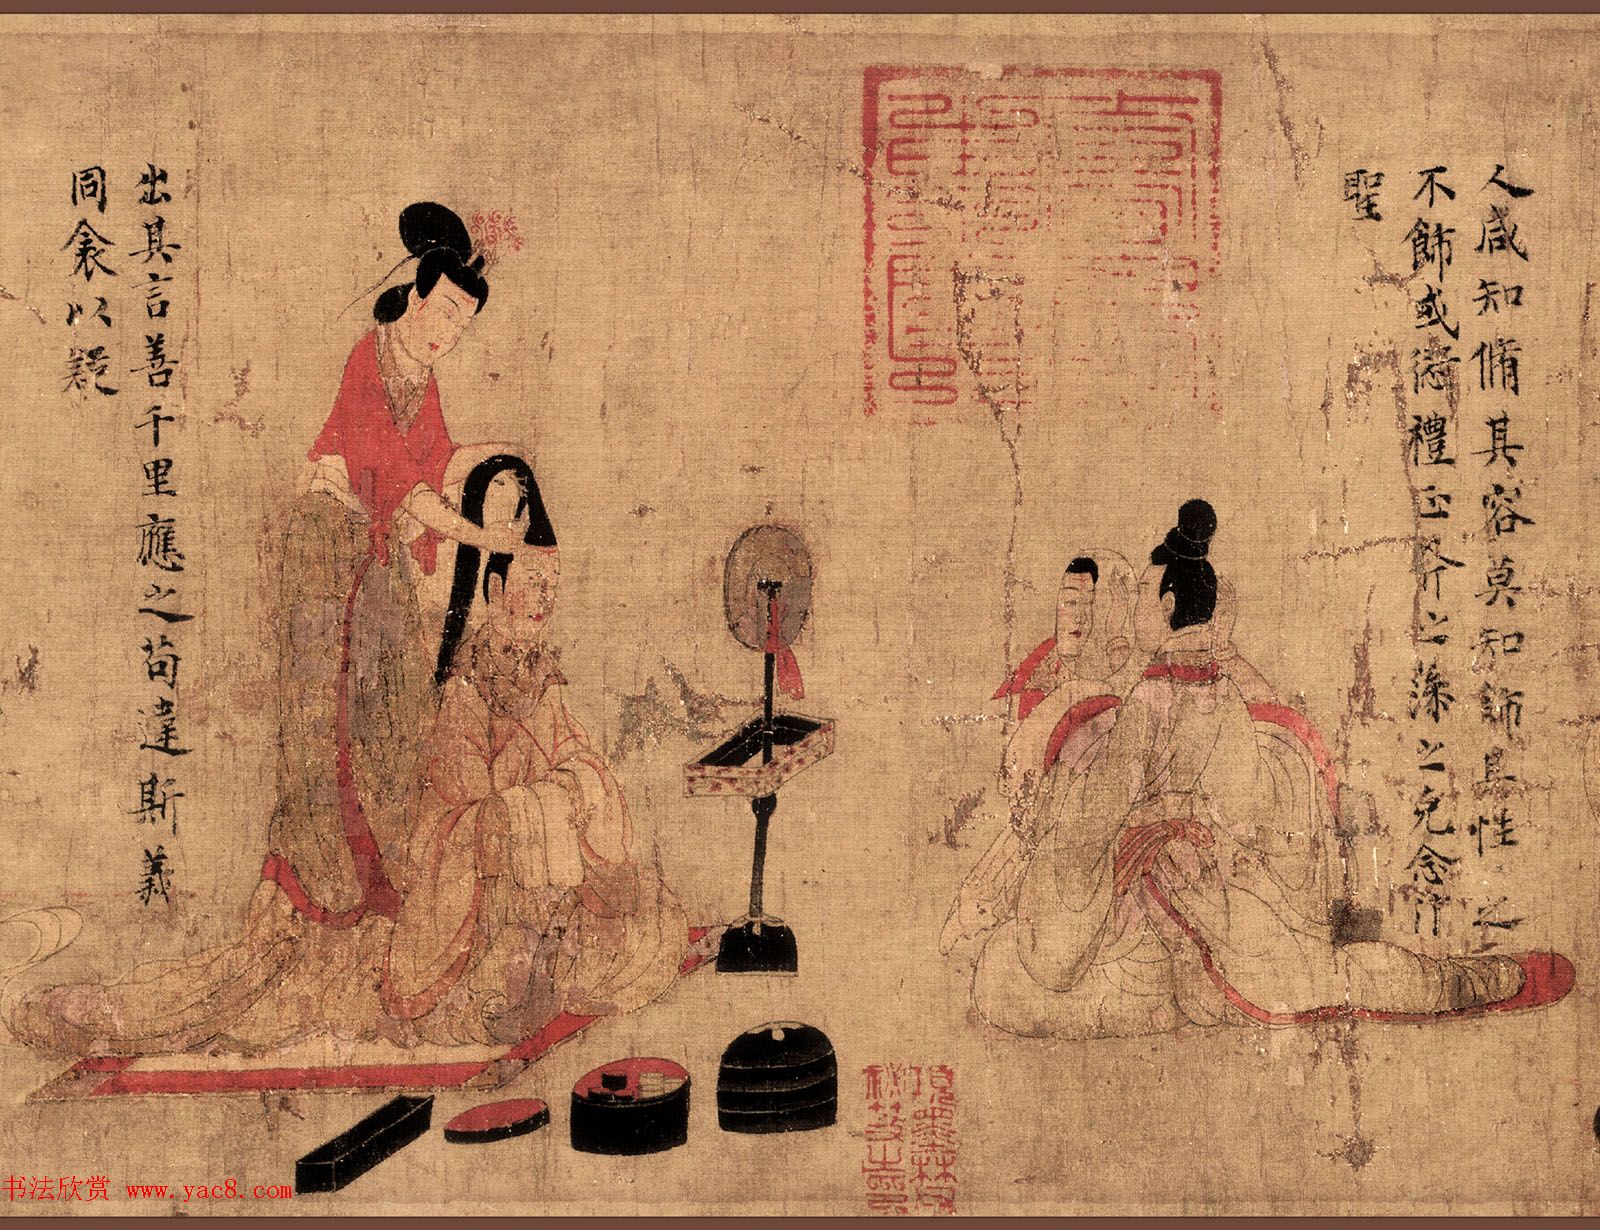 人咸知脩其容莫知飾其性之
不飾或愆禮正斧之藻之克念作
聖
出其言善千里應之苟違斯義
同衾以疑
項墨林父
祕笈之印
书法欣赏 www.yac8.com